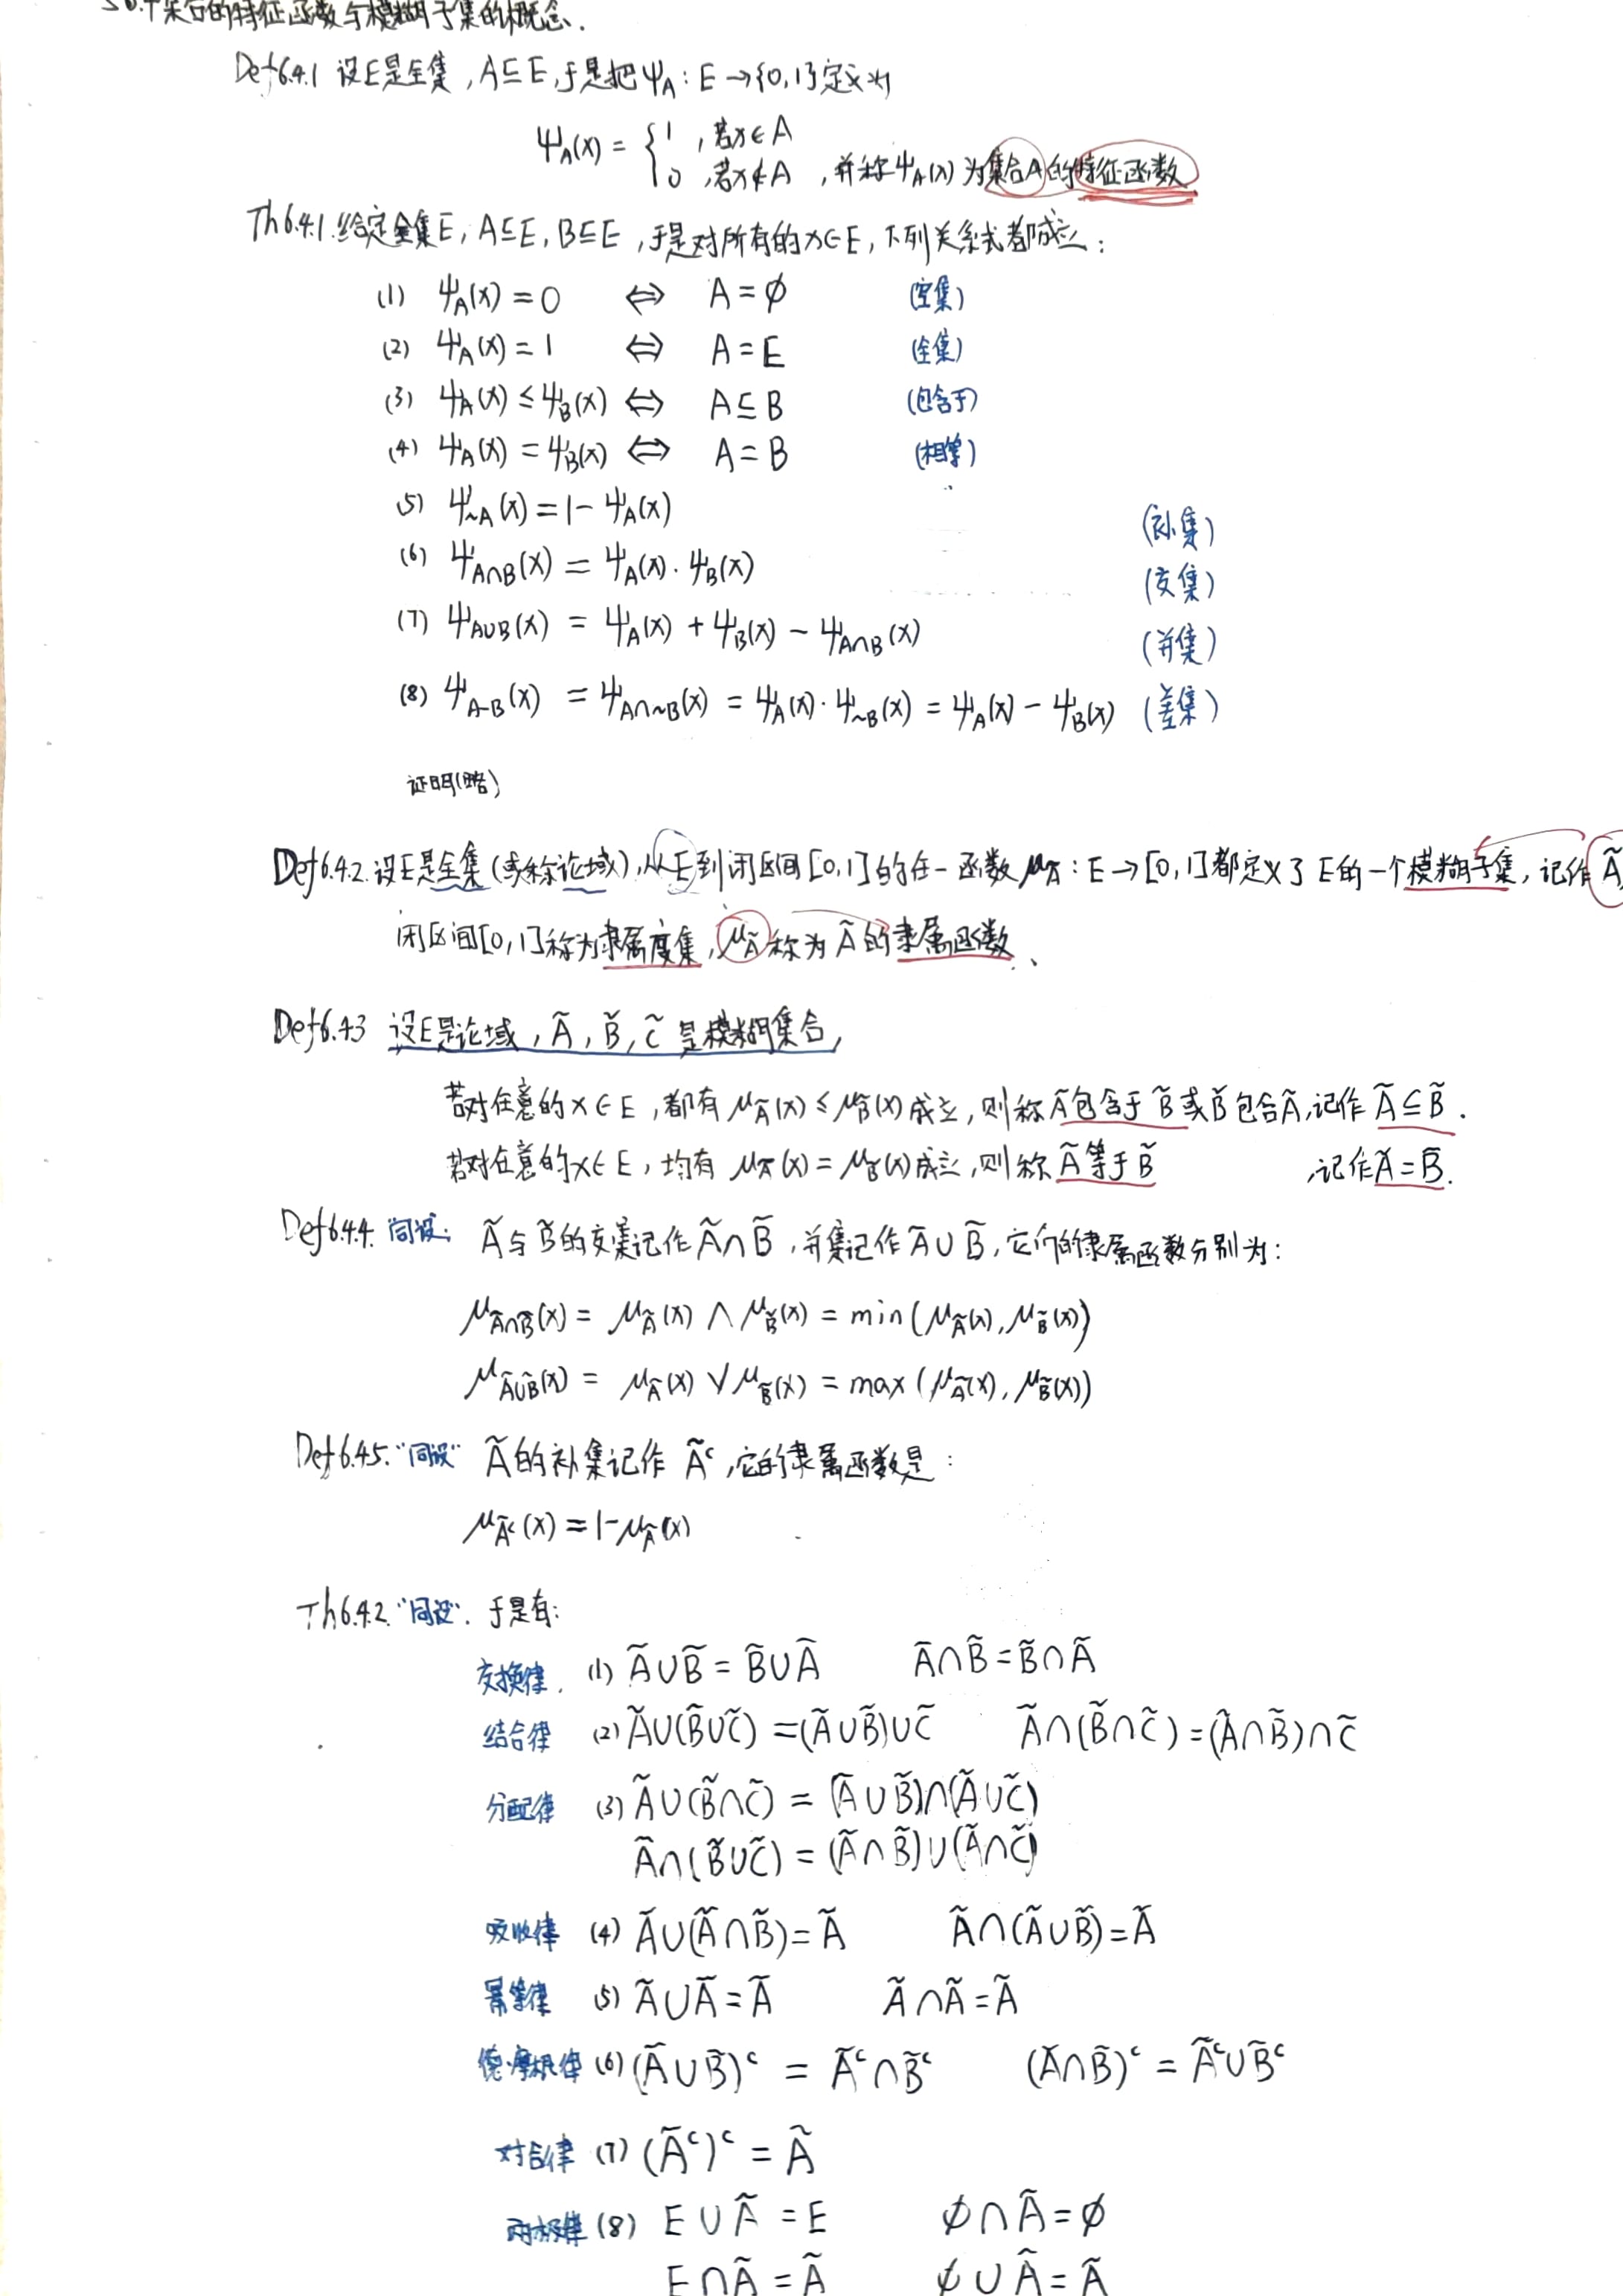 集合的特征函数与模糊子集的概念.
Def6.4.1 设E是全集,A⊆E,于是把ψ_A:E→{0,1}定义为
ψ_A(x) = { 1 ,若x∈A
0 ,若x∉A ,并称ψ_A(x)为集合A的特征函数.
Th6.4.1.给定全集E,A⊆E,B⊆E,于是对所有的x∈E,下列关系式都成立:
(1) ψ_A(x)=0 ⇔ A=∅ (空集)
(2) ψ_A(x)=1 ⇔ A=E (全集)
(3) ψ_A(x)≤ψ_B(x) ⇔ A⊆B (包含于)
(4) ψ_A(x)=ψ_B(x) ⇔ A=B (相等)
(5) ψ_~A(x)=1-ψ_A(x) (补集)
(6) ψ_A∩B(x)=ψ_A(x)·ψ_B(x) (交集)
(7) ψ_A∪B(x)=ψ_A(x)+ψ_B(x)-ψ_A∩B(x) (并集)
(8) ψ_A-B(x)=ψ_A∩~B(x)=ψ_A(x)·ψ_~B(x)=ψ_A(x)-ψ_B(x) (差集)
证明(略)
Def6.4.2.设E是全集(或称论域),从E到闭区间[0,1]的任一函数μ_Ã:E→[0,1]都定义了E的一个模糊子集,记作Ã,
闭区间[0,1]称为隶属度集,μ_Ã称为Ã的隶属函数.
Def6.4.3 设E是论域,Ã,B̃,C̃是模糊集合,
若对任意的x∈E,都有μ_Ã(x)≤μ_B̃(x)成立,则称Ã包含于B̃或B̃包含Ã,记作Ã⊆B̃.
若对任意的x∈E,均有μ_Ã(x)=μ_B̃(x)成立,则称Ã等于B̃ ,记作Ã=B̃.
Def6.4.4.同设: Ã与B̃的交集记作Ã∩B̃,并集记作Ã∪B̃,它们的隶属函数分别为:
μ_Ã∩B̃(x)=μ_Ã(x)∧μ_B̃(x)=min(μ_Ã(x),μ_B̃(x))
μ_Ã∪B̃(x)=μ_Ã(x)∨μ_B̃(x)=max(μ_Ã(x),μ_B̃(x))
Def6.4.5."同设" Ã的补集记作Ã^c,它的隶属函数是:
μ_Ã^c(x)=1-μ_Ã(x)
Th6.4.2."同设".于是有:
交换律. (1) Ã∪B̃=B̃∪Ã Ã∩B̃=B̃∩Ã
结合律 (2) Ã∪(B̃∪C̃)=(Ã∪B̃)∪C̃ Ã∩(B̃∩C̃)=(Ã∩B̃)∩C̃
分配律 (3) Ã∪(B̃∩C̃)=(Ã∪B̃)∩(Ã∪C̃)
Ã∩(B̃∪C̃)=(Ã∩B̃)∪(Ã∩C̃)
吸收律 (4) Ã∪(Ã∩B̃)=Ã Ã∩(Ã∪B̃)=Ã
幂等律 (5) Ã∪Ã=Ã Ã∩Ã=Ã
德·摩根律 (6) (Ã∪B̃)^c=Ã^c∩B̃^c (Ã∩B̃)^c=Ã^c∪B̃^c
对合律 (7) (Ã^c)^c=Ã
两极律 (8) E∪Ã=E ∅∩Ã=∅
E∩Ã=Ã ∅∪Ã=Ã